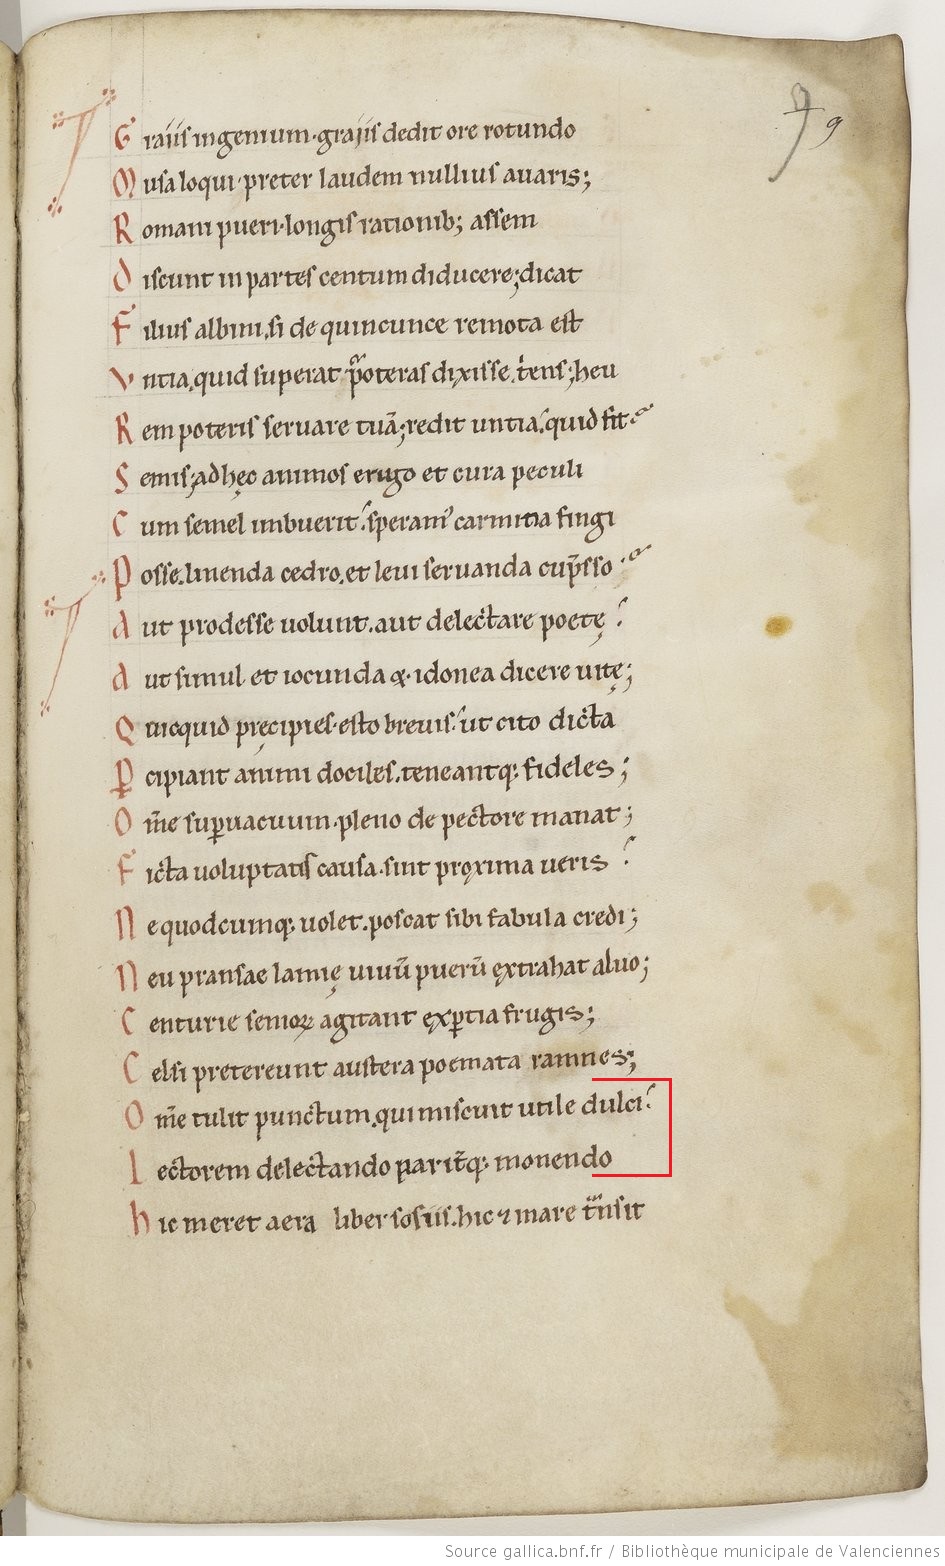 Graiis ingenium·graiis dedit ore rotundo
Musa loqui·preter laudem nullius auaris;
Romani pueri·longis rationib; assem
Discunt in partes centum diducere; dicat
Filius albini.si de quincunce remota est
Vntia.quid superat p̄oteras dixisse.t͛ens; heu
Rem poteris seruare tuā; redit untia.quid fit
Semis; ad hęc animos erugo et cura peculi
Cum semel imbuerit. speram᾽ carmina fingi
Posse.linenda cedro.et leui seruanda cup̄sso
Aut prodesse uolunt.aut delectare poetę
Aut simul et iocunda &·idonea dicere uitę;
Quicquid pręcipies·esto breuis·ut cito dicta
P̱cipiant animi dociles.teneantq; fideles;
Om̄e sup̱uacuum·pleno de pectore manat;
Ficta uoluptatis causa·sint proxima ueris
Nequodcumq; uolet.poscat sibi fabula credi;
Neu pransae lamię uiuū puerū ęxtrahat aluo;
Centurie senioꝝ agitant ęxp̱tia frugis;
Celsi pretereunt austera poemata ramnes;
Om̄e tulit punctum.qui miscuit utile dulci
Lectorem delectando parit͛q; monendo
hic meret aera liber sosiis.hic ⁊ mare t͛nsit
9
Source gallica.bnf.fr / Bibliothèque municipale de Valenciennes